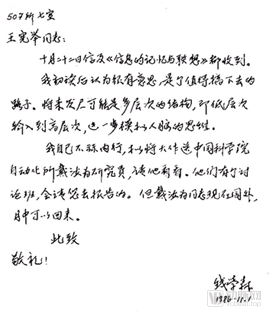 507所七室
王宪举同志：
十月二十二日信及《信息的记忆与联想》都收到。
我初读后认为很有意思，是个值得搞下去的
路子。将来发展可能是多层次的结构，即低层次
输入到高层次，这一步模拟人脑的思维。
我自己不够内行，拟将大作送中国科学院
自动化所戴汝为研究员，请他看看。他们有个讨
论班，会请您去报告的。但戴汝为同志现在国外，
月中可以回来。
此致
敬礼！
钱学森
1986.11.1